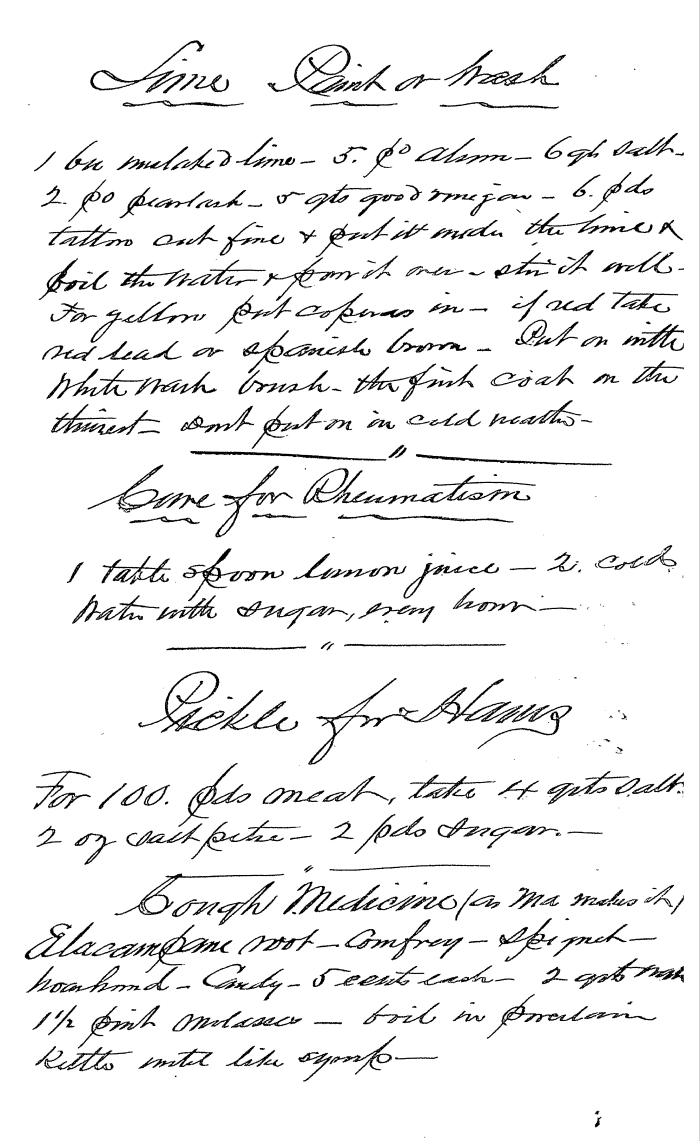 Lime Paint or Wash
1 bu unslaked lime - 5. po Alum - 6 qts salt -
2. po pearlash - 5 qts good vinegar - 6. pds
tallow cut fine & put it under the lime &
boil the water & pour it over - stir it well -
For yellow put coperas in - if red take
red lead or spanish brown - Put on with
White Wash brush - the first coat on the
thinest - dont put on in cold weather -
"
Cure for Rheumatism
1 table spoon lemon juice - 2. cold
Water with sugar, every hour -
"
Pickle for Hams
For 100. pds meat, take 4 qts salt.
2 oz salt petre - 2 pds sugar. -
"
Cough Medicine (as Ma makes it)
Elacampane root - Comfrey - spignet -
hoarhound - Candy - 5 cents each - 2 qrts
1 1/2 pint molasses - boil in porcelain
Kettle until like syrup -